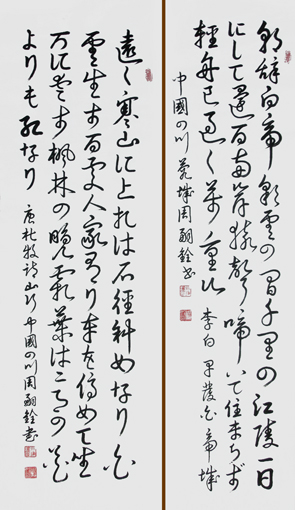 朝辞白帝彩雲の間千里の江陵一日
にして還る両岸猿聲啼いて住まらず
輕舟已に過く萬重山 李白 早發白帝城
中國四川 蓉城周嗣銓書
遠く寒山に上れば石徑斜めなり白
雲生ずる處人家有り車を停めて坐
ろに愛す楓林の晩霜葉は二月の花
よりも紅なり 唐杜牧詩山行 中國四川周嗣銓書